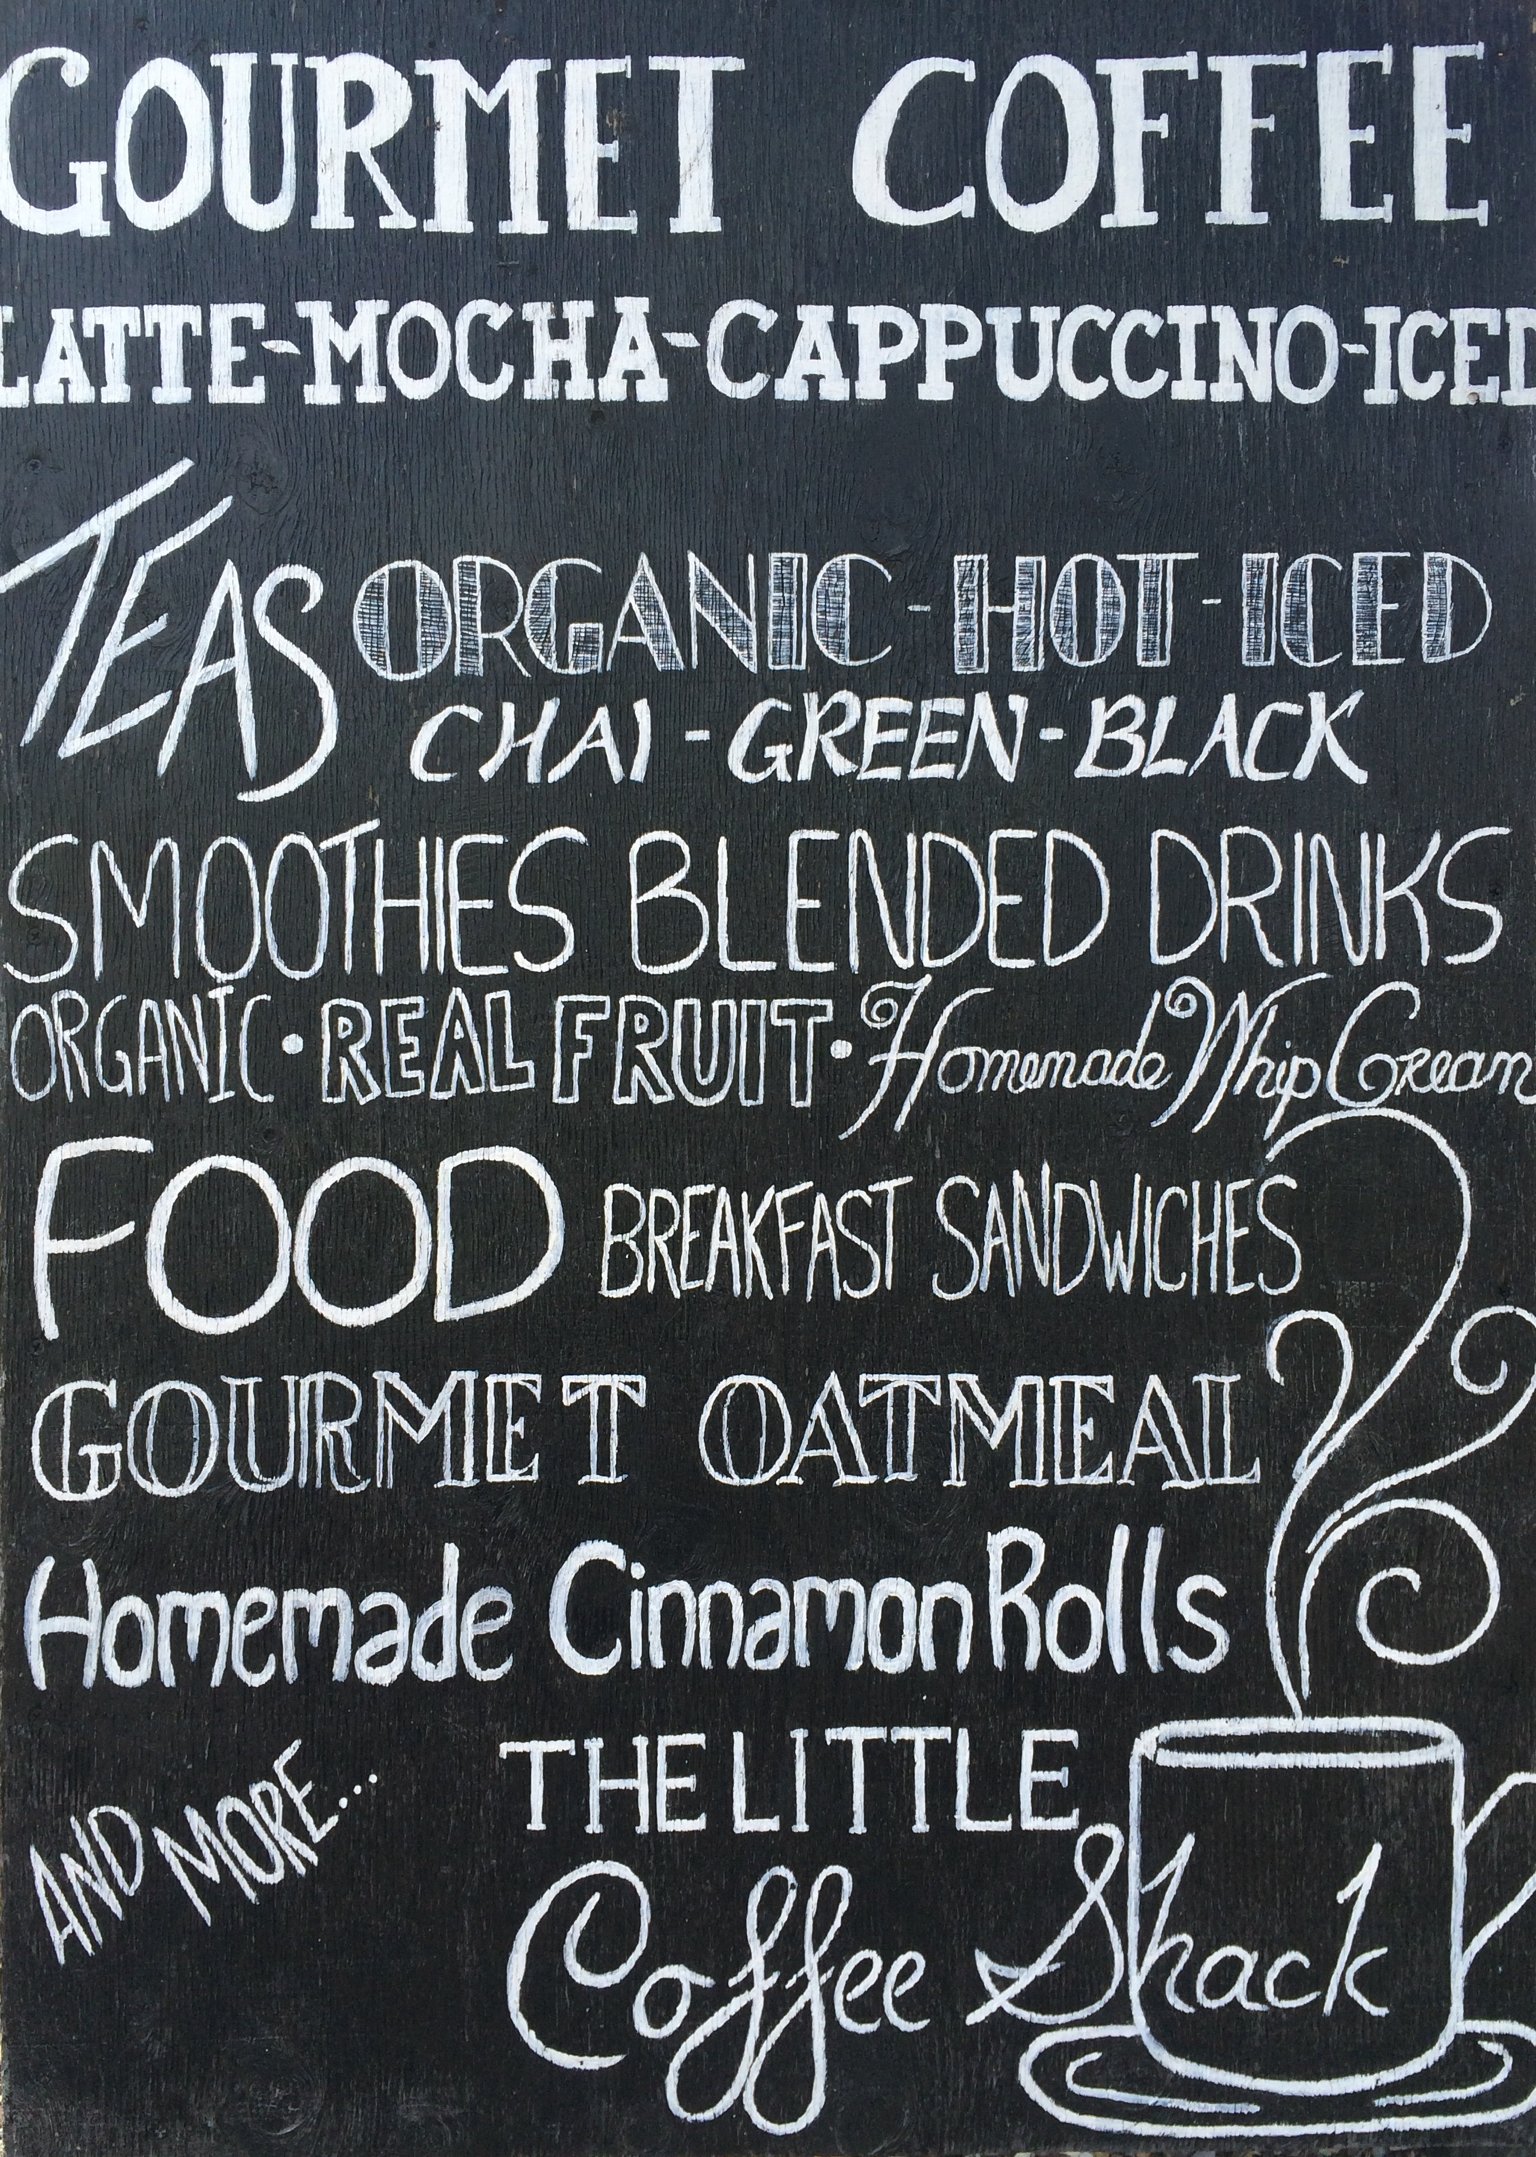 GOURMET COFFEE
LATTE-MOCHA-CAPPUCCINO-ICED
TEAS ORGANIC-HOT-ICED
CHAI-GREEN-BLACK
SMOOTHIES BLENDED DRINKS
ORGANIC • REAL FRUIT • Homemade Whip Cream
FOOD BREAKFAST SANDWICHES
GOURMET OATMEAL
Homemade Cinnamon Rolls
AND MORE...
THE LITTLE
Coffee Shack